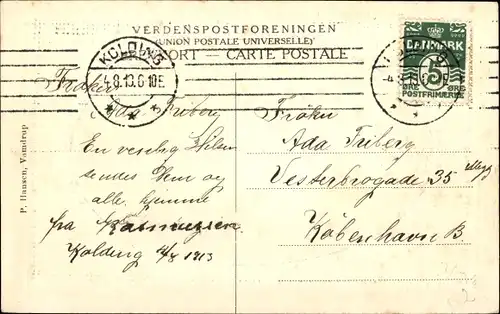 VERDENSPOSTFORENINGEN
(UNION POSTALE UNIVERSELLE)
CARTE POSTALE
KOLDING
4.8.13.6 10E.
DANMARK
5
ØRE ØRE
POSTFRIMÆRKE
P. Hansen, Vamdrup
Frøken
Ada Friberg
En venlig Hilsen
sendes Dem og
alle hjemme
fra Rasmussen
Kolding 4/8 1913
Frøken
Ada Friberg
Vesterbrogade 35
København B.